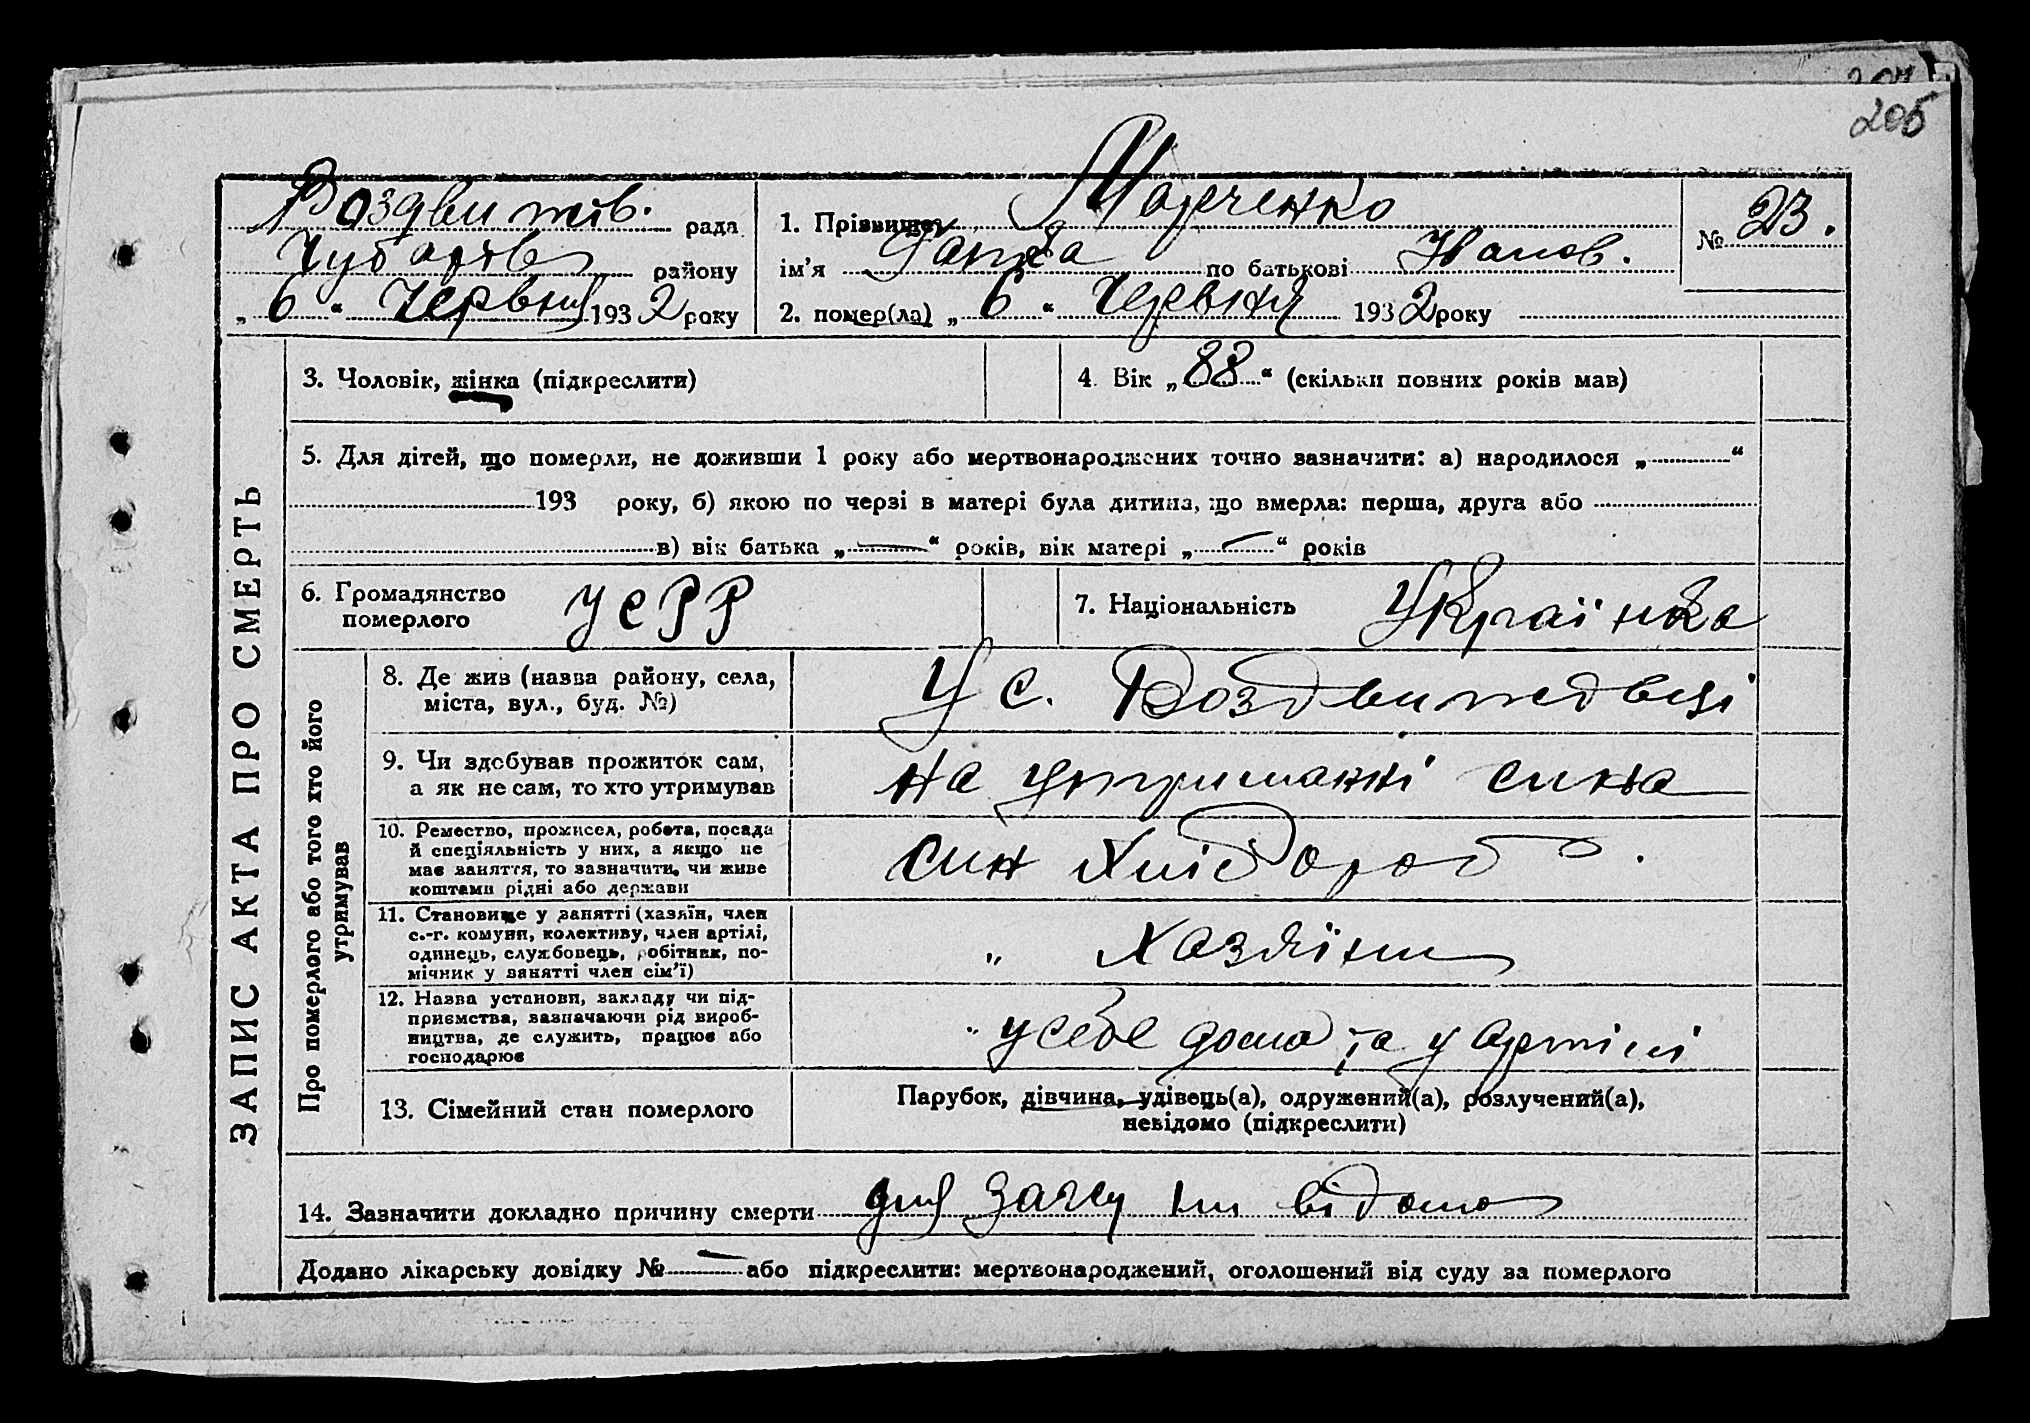 205
Воздвижів. рада
Чубарів району
„ 6 “ Червня 1932 року
1. Прізвище Марченко
ім'я Ганна по батькові
2. помер(ла) „ 6 “ Червня 1932 року
№ 23.
ЗАПИС АКТА ПРО СМЕРТЬ
3. Чоловік, жінка (підкреслити)
4. Вік „ 88 “ (скільки повних років мав)
5. Для дітей, що померли, не доживши 1 року або мертвонароджених точно зазначити: а) народилося „ “
193 року, б) якою по черзі в матері була дитина, що вмерла: перша, друга або
в) вік батька „ — “ років, вік матері „ — “ років
6. Громадянство
померлого
УСРР
7. Національність Українка
Про померлого або того хто його
утримував
8. Де жив (назва району, села,
міста, вул., буд. №)
У с. Воздвижевці
9. Чи здобував прожиток сам,
а як не сам, то хто утримував
на утриманні сина
10. Ремество, промисел, робота, посада
й спеціяльність у них, а якщо не
має заняття, то зазначити, чи живе
коштами рідні або держави
син Хлібороб.
11. Становище у занятті (хазяїн, член
с.-г. комуни, колективу, член артілі,
одинець, службовець, робітник, по-
мічник у занятті член сім'ї)
„ Хазяїн
12. Назва установи, закладу чи під-
приємства, зазначаючи рід вироб-
ництва, де служить, працює або
господарює
„ у себе дома та у артілі
13. Сімейний стан померлого
Парубок, дівчина, удівець(а), одружений(а), розлучений(а),
невідомо (підкреслити)
14. Зазначити докладно причину смерти для загсу не відомо
Додано лікарську довідку № — або підкреслити: мертвонароджений, оголошений від суду за померлого